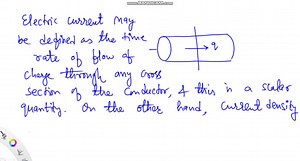 Electric current may
be defined as the time
rate of flow of
charge through any cross
section of the conductor, & this is a scalar
quantity. On the other hand, current density
q